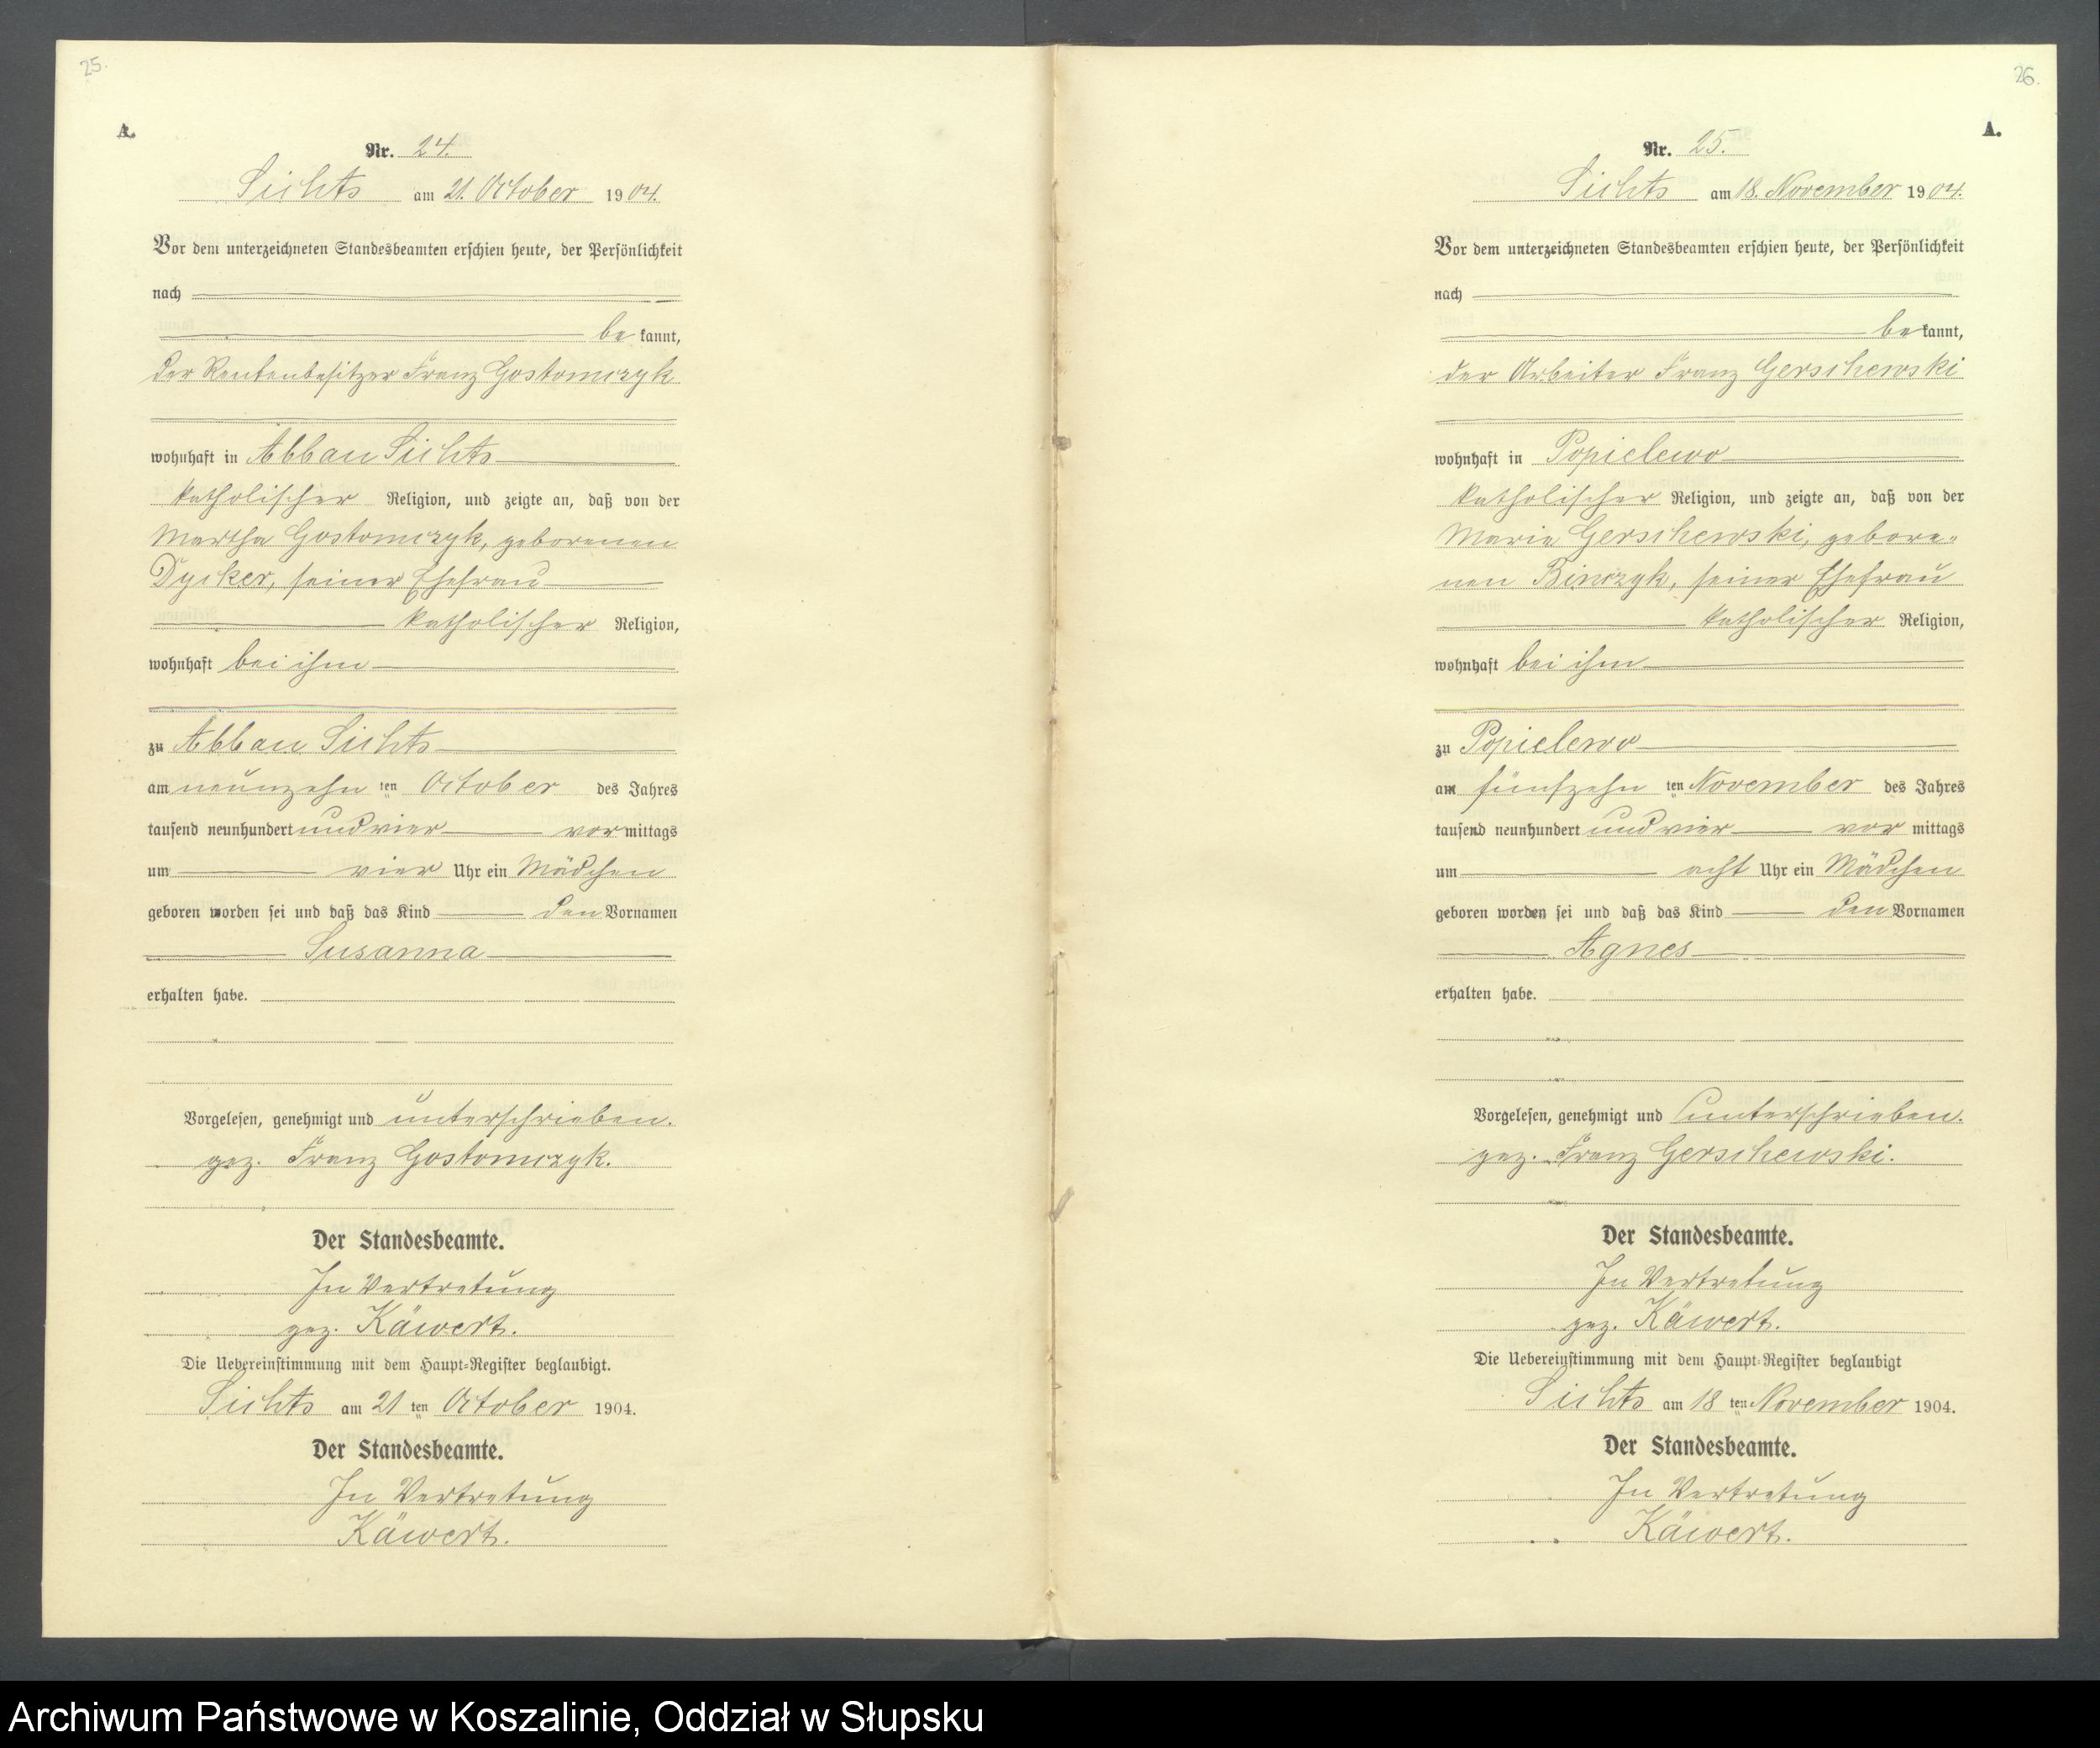 25.
A.
Nr. 24.
Lichts am 21. October 1904.
Vor dem unterzeichneten Standesbeamten erschien heute, der Persönlichkeit
nach
be kannt,
der Rentenbesitzer Franz Gostomczyk
wohnhaft in Abbau Lichts
katholischer Religion, und zeigte an, daß von der
Martha Gostomczyk, geborenen
Dycker, seiner Ehefrau
katholischer Religion,
wohnhaft bei ihm
zu Abbau Lichts
am neunzehn ten October des Jahres
tausend neunhundert und vier vor mittags
um vier Uhr ein Mädchen
geboren worden sei und daß das Kind den Vornamen
Susanna
erhalten habe.
Vorgelesen, genehmigt und unterschrieben.
gez. Franz Gostomczyk.
Der Standesbeamte.
In Vertretung
gez. Käwert.
Die Uebereinstimmung mit dem Haupt-Register beglaubigt.
Lichts am 21 ten October 1904.
Der Standesbeamte.
In Vertretung
Käwert.
26.
A.
Nr. 25.
Lichts am 18. November 1904.
Vor dem unterzeichneten Standesbeamten erschien heute, der Persönlichkeit
nach
be kannt,
der Arbeiter Franz Gerschewski
wohnhaft in Popielewo
katholischer Religion, und zeigte an, daß von der
Marie Gerschewski, gebore-
nen Binczyk, seiner Ehefrau
katholischer Religion,
wohnhaft bei ihm
zu Popielewo
am fünfzehn ten November des Jahres
tausend neunhundert und vier vor mittags
um acht Uhr ein Mädchen
geboren worden sei und daß das Kind den Vornamen
Agnes
erhalten habe.
Vorgelesen, genehmigt und unterschrieben.
gez. Franz Gerschewski.
Der Standesbeamte.
In Vertretung
gez. Käwert.
Die Uebereinstimmung mit dem Haupt-Register beglaubigt
Lichts am 18 ten November 1904.
Der Standesbeamte.
In Vertretung
Käwert.
Archiwum Państwowe w Koszalinie, Oddział w Słupsku